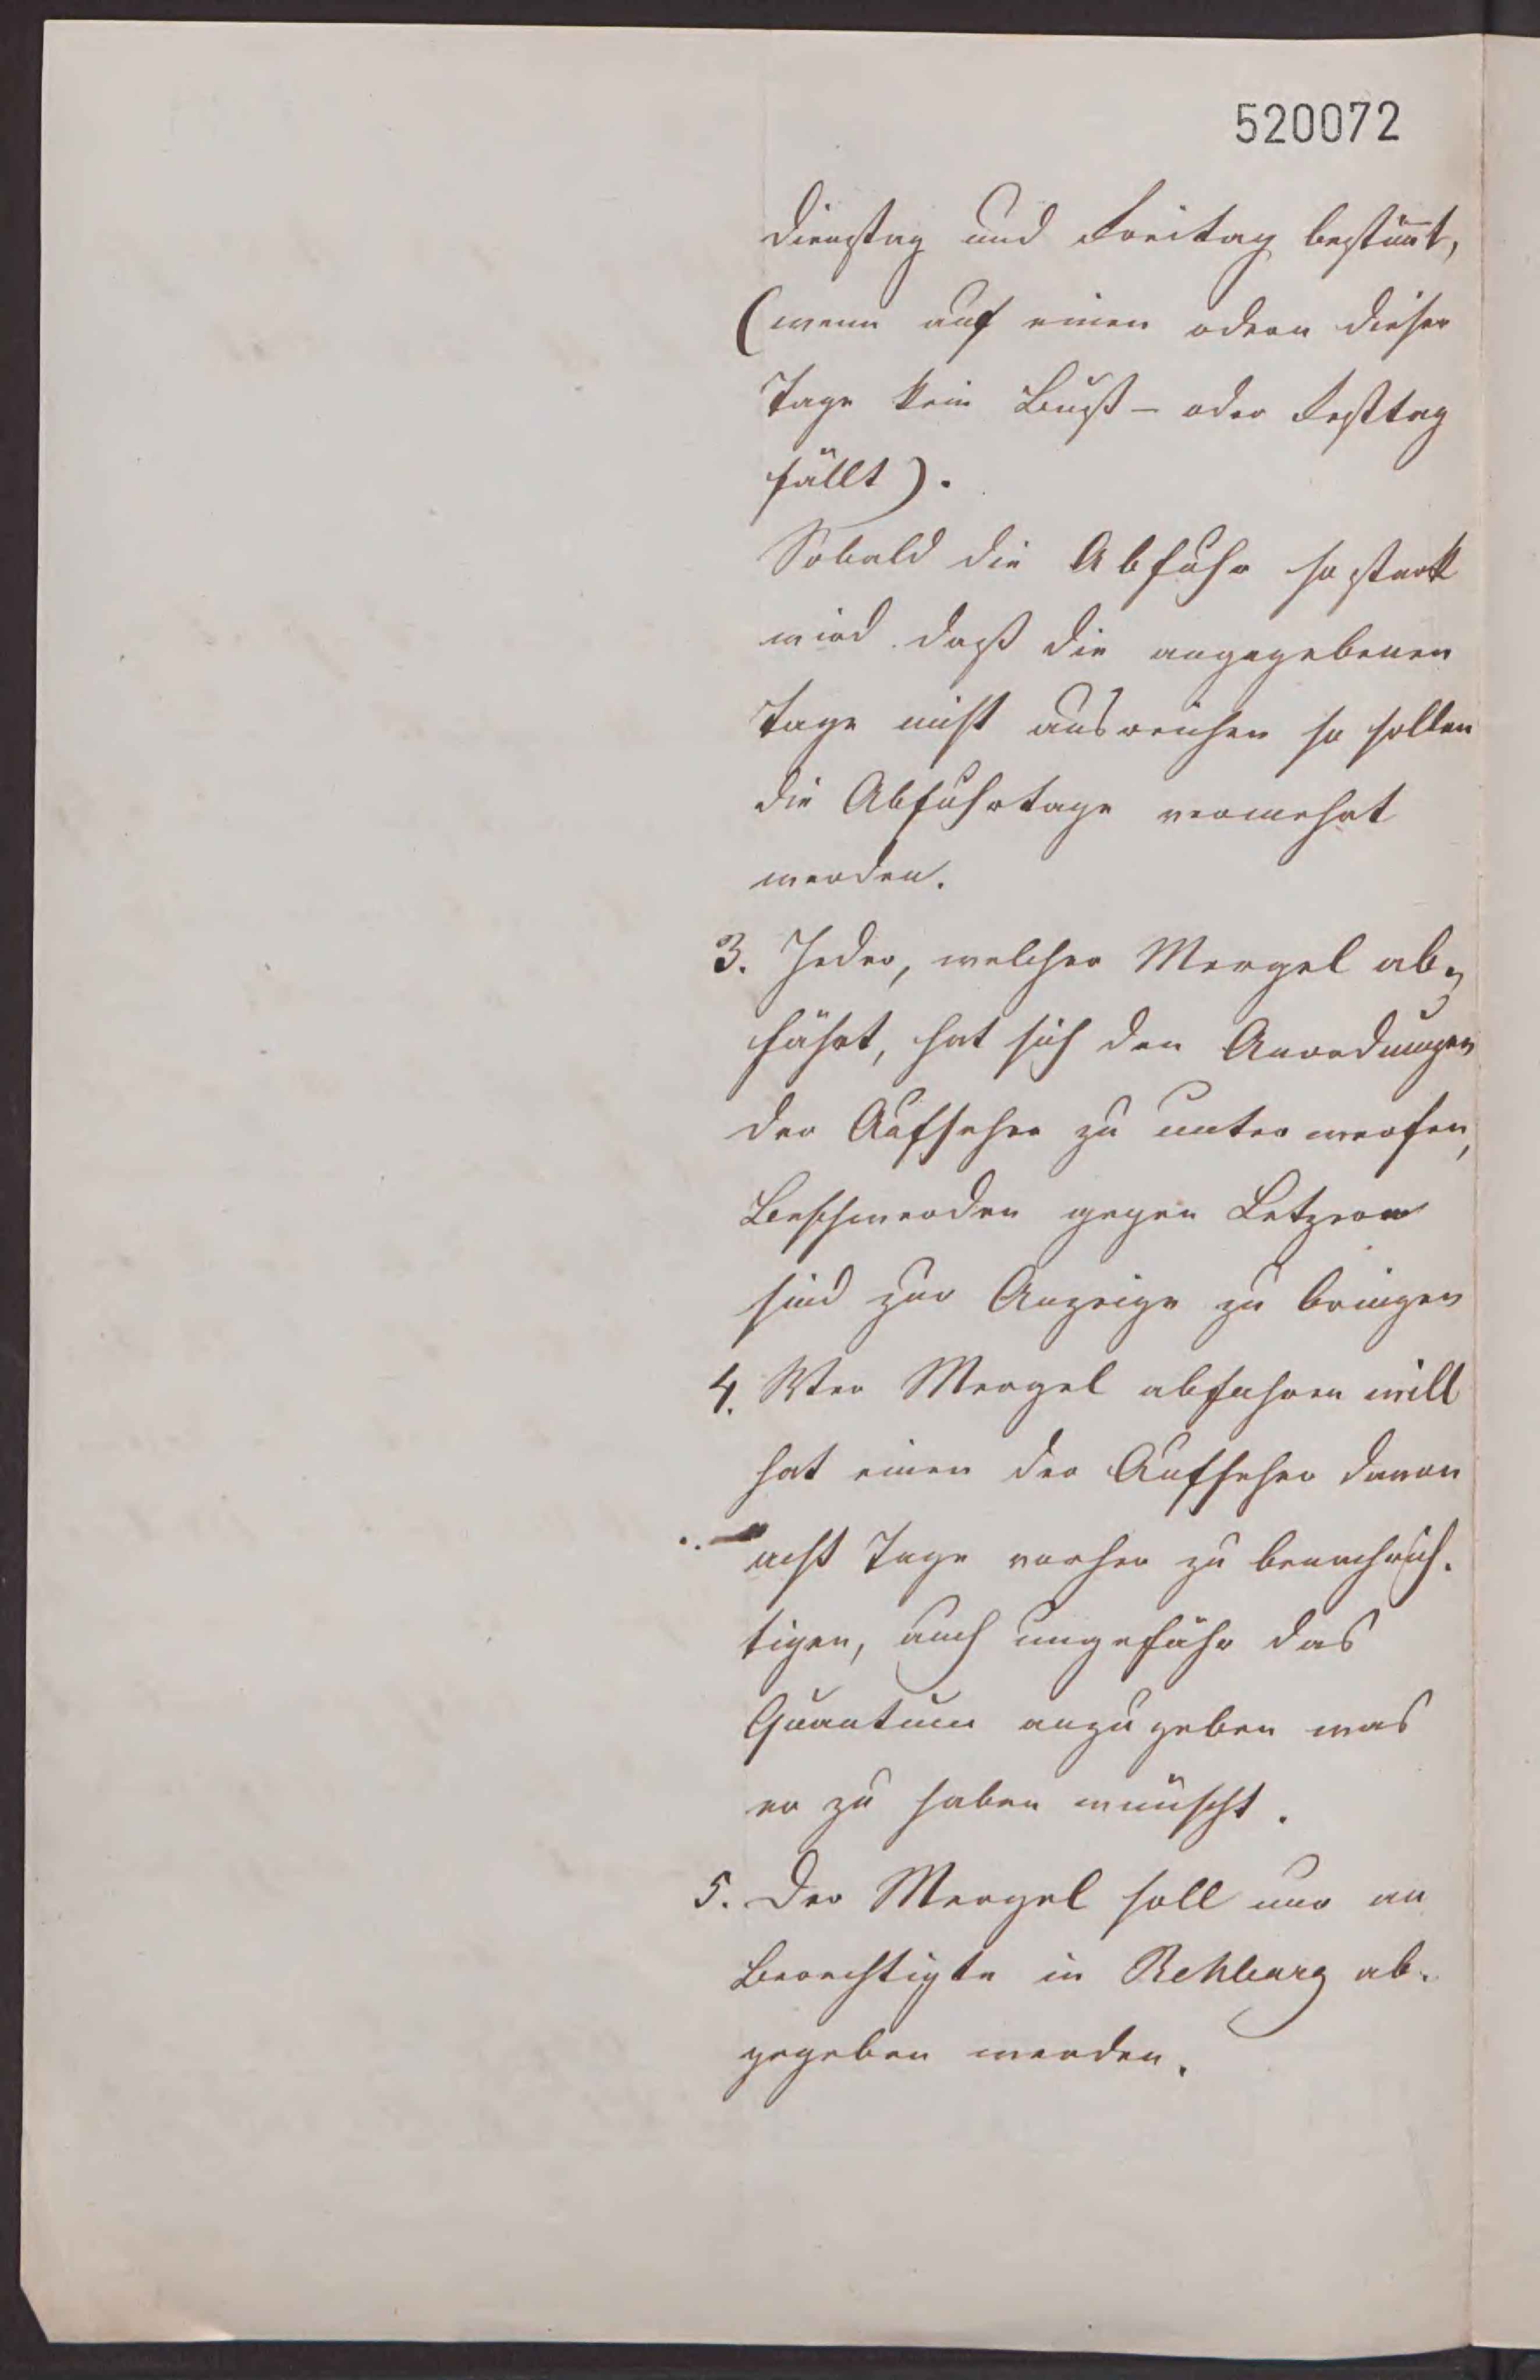 520072
Dienstag und Freitag bestim̄t,
(wenn auf einen odern dieser
Tage kein Buß- oder Festtag
fällt).
Sobald die Abfuhr so stark
wird daß die angegebenen
Tage nicht ausreichen so sollen
die Abfuhrtage vermehrt
werden.
3. Jeder, welcher Mergel ab-
fährt, hat sich den Anordnungen
der Aufseher zu unterwerfen,
Beschwerden gegen Letzere
sind zur Anzeige zu bringen
4. Wer Mergel abfahren will
hat einen der Aufseher davon
acht Tage vorher zu benachrich-
tigen, auch ungefähr das
Quantum anzugeben was
er zu haben wünscht.
5. Der Mergel soll nur an
Berechtigte in Rehburg ab-
gegeben werden.